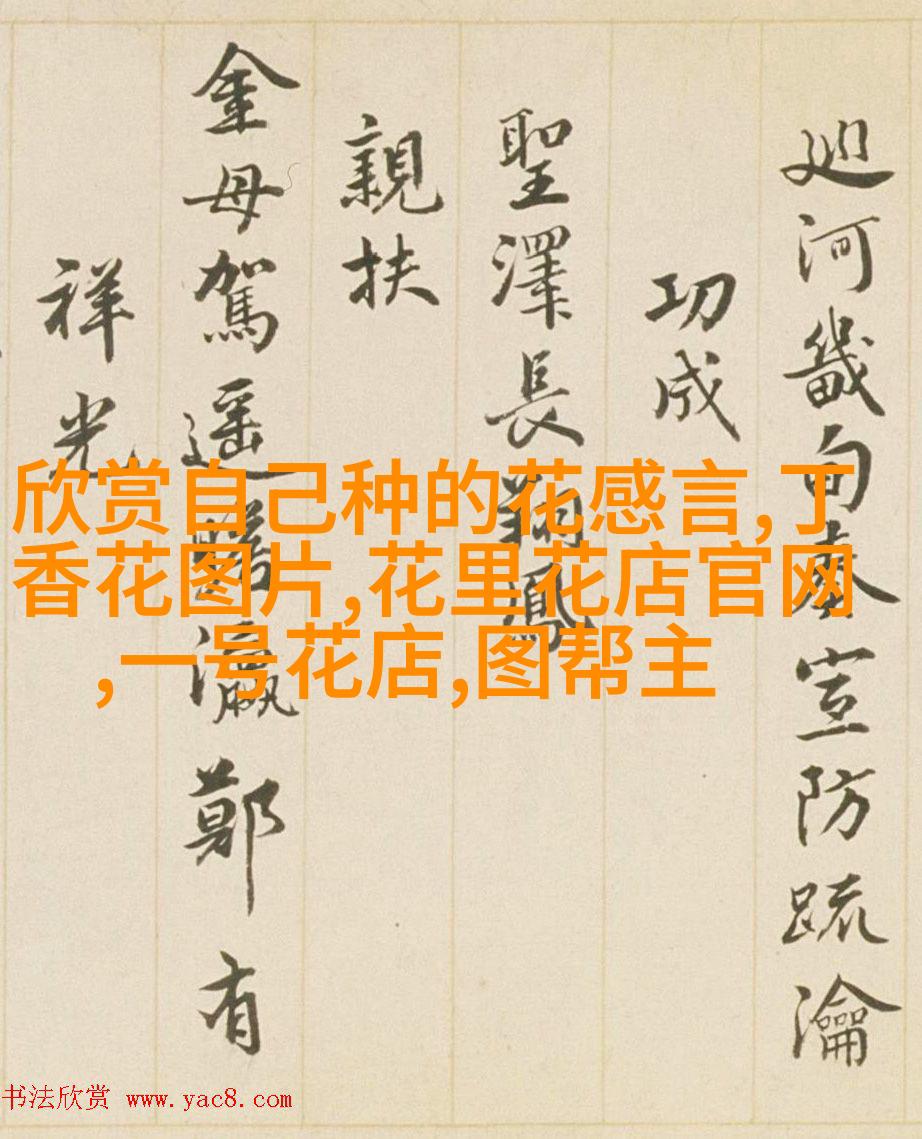 廵河畿甸奏宣防疏瀹
功成
聖澤長鳳
親扶
金母駕遥瀛鄭有
祥光
欣赏自己种的花感言,丁
香花图片,花里花店官网
,一号花店,图帮主
书法欣赏 www.yac8.com